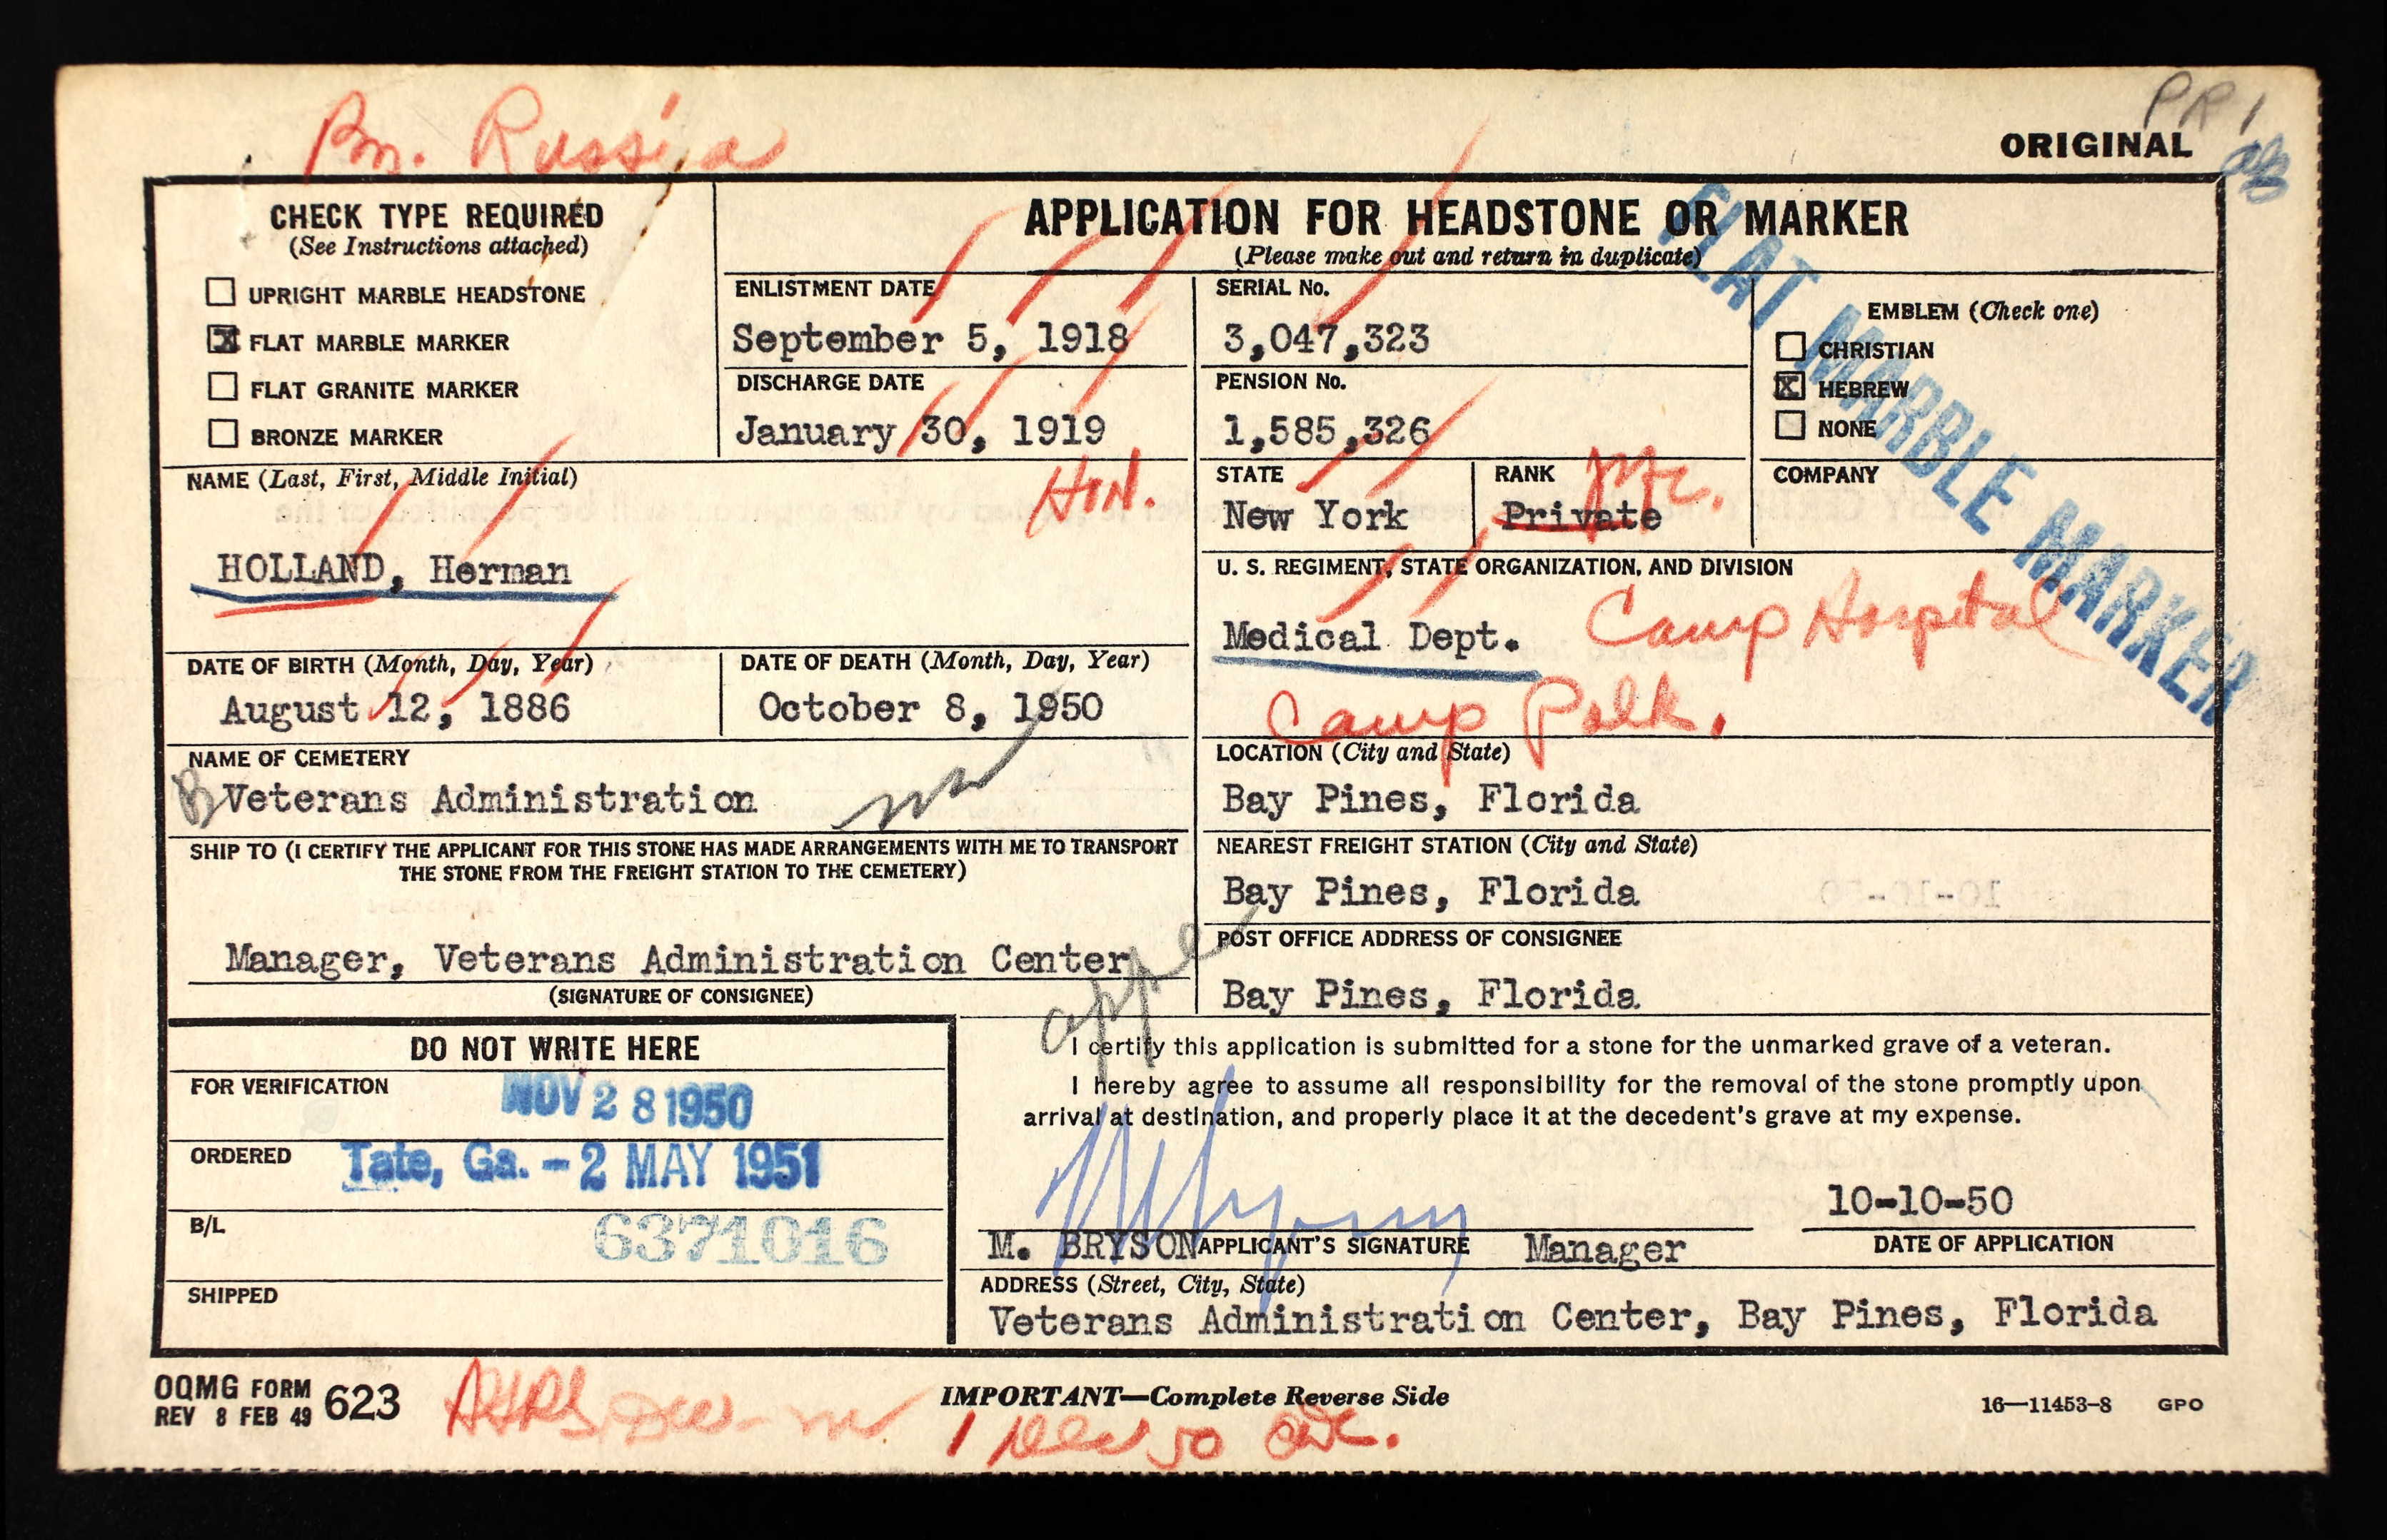 Bn. Russia
PR 1
ORIGINAL
CHECK TYPE REQUIRED
(See Instructions attached)
UPRIGHT MARBLE HEADSTONE
X FLAT MARBLE MARKER
FLAT GRANITE MARKER
BRONZE MARKER
APPLICATION FOR HEADSTONE OR MARKER
(Please make out and return in duplicate)
FLAT MARBLE MARKER
ENLISTMENT DATE
September 5, 1918
DISCHARGE DATE
January 30, 1919
SERIAL No.
3,047,323
PENSION No.
1,585,326
EMBLEM (Check one)
CHRISTIAN
X HEBREW
NONE
NAME (Last, First, Middle Initial)
HON.
HOLLAND, Herman
STATE
New York
RANK
Pfc.
Private
COMPANY
U. S. REGIMENT, STATE ORGANIZATION, AND DIVISION
Medical Dept. Camp Hospital
Camp Polk.
DATE OF BIRTH (Month, Day, Year)
August 12, 1886
DATE OF DEATH (Month, Day, Year)
October 8, 1950
NAME OF CEMETERY
B Veterans Administration
LOCATION (City and State)
Bay Pines, Florida
SHIP TO (I CERTIFY THE APPLICANT FOR THIS STONE HAS MADE ARRANGEMENTS WITH ME TO TRANSPORT
THE STONE FROM THE FREIGHT STATION TO THE CEMETERY)
Manager, Veterans Administration Center
(SIGNATURE OF CONSIGNEE)
NEAREST FREIGHT STATION (City and State)
Bay Pines, Florida
POST OFFICE ADDRESS OF CONSIGNEE
Bay Pines, Florida
DO NOT WRITE HERE
FOR VERIFICATION
NOV 28 1950
ORDERED
Tate, Ga. - 2 MAY 1951
B/L
6371016
SHIPPED
I certify this application is submitted for a stone for the unmarked grave of a veteran.
I hereby agree to assume all responsibility for the removal of the stone promptly upon
arrival at destination, and properly place it at the decedent's grave at my expense.
10-10-50
M. BRYSON APPLICANT'S SIGNATURE Manager
DATE OF APPLICATION
ADDRESS (Street, City, State)
Veterans Administration Center, Bay Pines, Florida
OQMG FORM 623
REV 8 FEB 49
IMPORTANT—Complete Reverse Side
16—11453-8 GPO